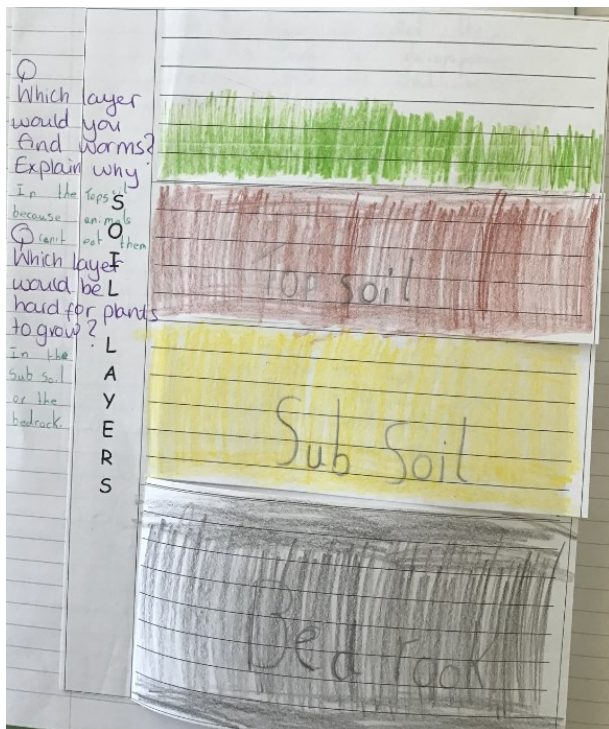 Q
Which layer
would you
find worms?
Explain why
In the Topsoil
because animals
can't eat them
Q
Which layer
would be
hard for plants
to grow?
In the
Sub Soil
or the
bedrock.
SOIL LAYERS
Top soil
Sub Soil
Bed rock